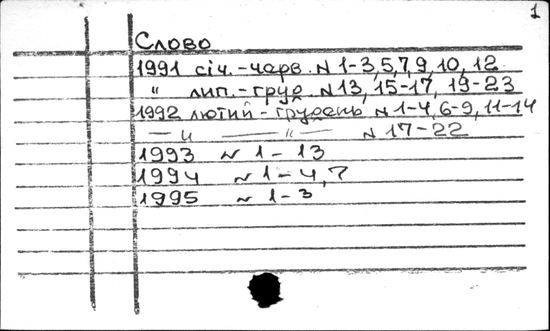 1
Слово
1991 січ.-черв. N 1-3,5,7,9,10,12
" лип.-груд. N 13, 15-17, 19-23
1992 лютий-грудень N 1-4,6-9,11-14
— " — — " — N 17-22
1993 N 1-13
1994 N 1-4,7
1995 N 1-3